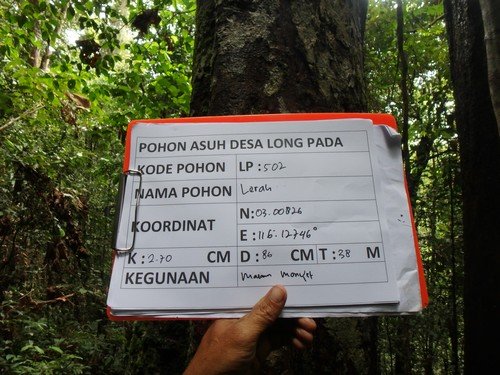 POHON ASUH DESA LONG PADA
KODE POHON LP : 502
NAMA POHON Lerak
KOORDINAT N: 03.00826
E : 116.12746°
K : 2.70 CM D : 86 CM T : 38 M
KEGUNAAN Makan monyet